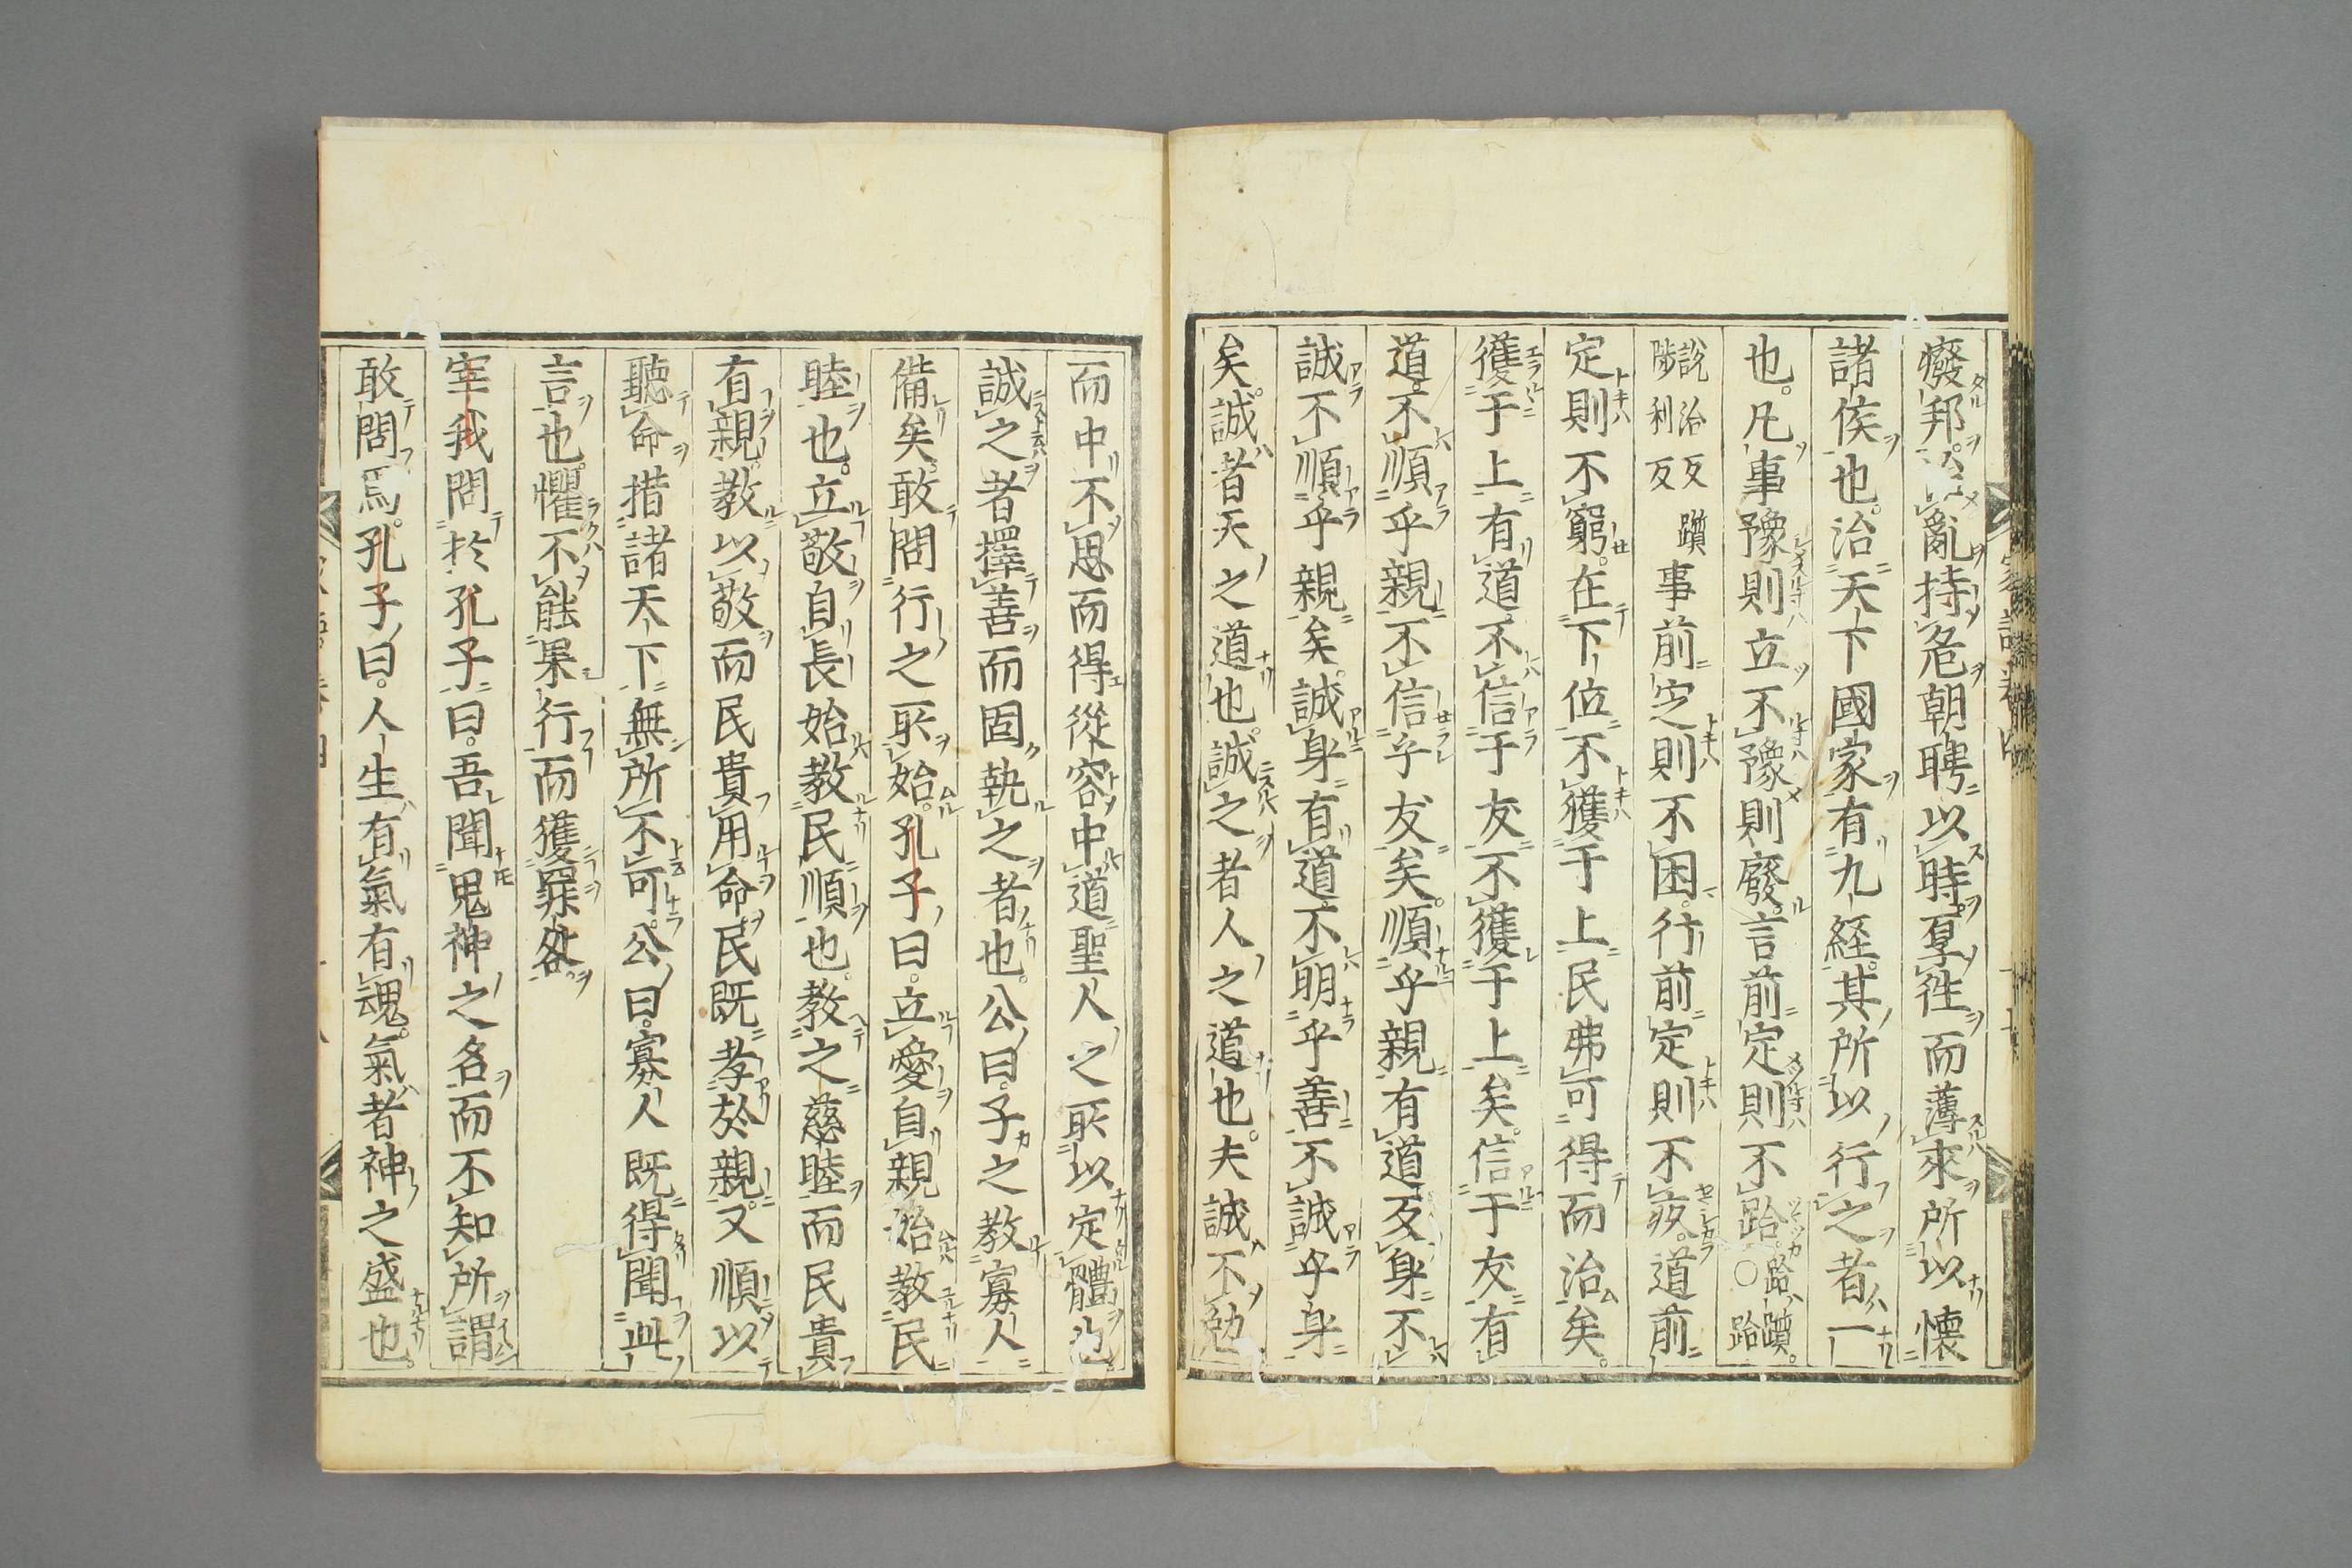 癈邦。治亂持危朝聘以時。厚徃而薄來所以懷
諸侯也。治天下國家有九経。其所以行之者一
也。凡事豫則立不豫則廢。言前定則不跲。跲躓。○跲
説治反躓
陟利反
事前定則不困。行前定則不疚。道前
定則不窮。在下位不獲于上民弗可得而治矣。
獲于上有道不信于友不獲于上矣。信于友有
道。不順乎親不信乎友矣。順乎親有道反身不
誠不順乎親矣。誠身有道不明乎善不誠乎身
矣。誠者天之道也。誠之者人之道也。夫誠不勉
而中不思而得從容中道聖人之所以定體也。
誠之者擇善而固執之者也。公曰。子之教寡人
備矣。敢問行之所始。孔子曰。立愛自親始教民
睦也。立敬自長始教民順也。教之慈睦而民貴
有親。教以敬而民貴用命民既孝於親又順以
聽命措諸天下無所不可。公曰。寡人既得聞此
言也。懼不能果行而獲罪咎。
宰我問於孔子曰。吾聞鬼神之名而不知所謂
敢問焉。孔子曰。人生有氣有魂。氣者神之盛也。